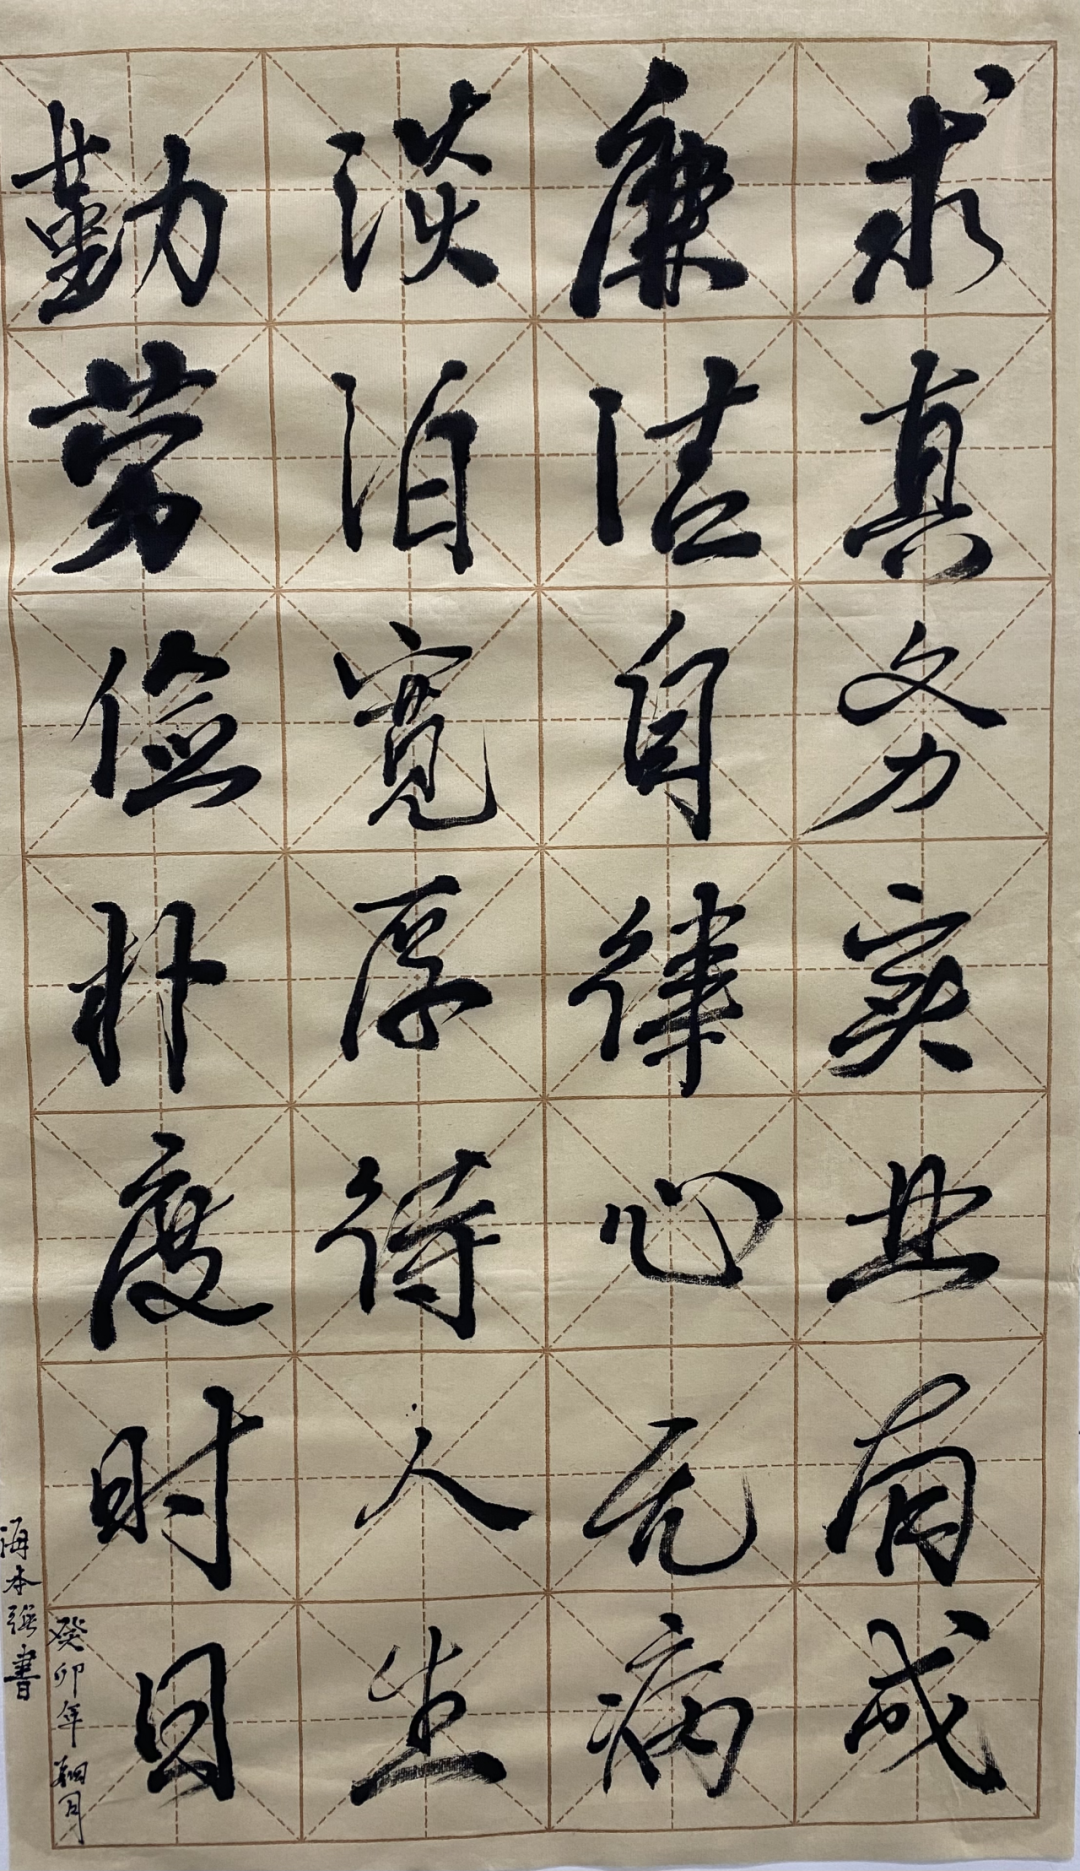 求真务实业有成
廉洁自律心无病
淡泊宽厚待人生
勤劳俭朴度时日
癸卯年 月
海本强書